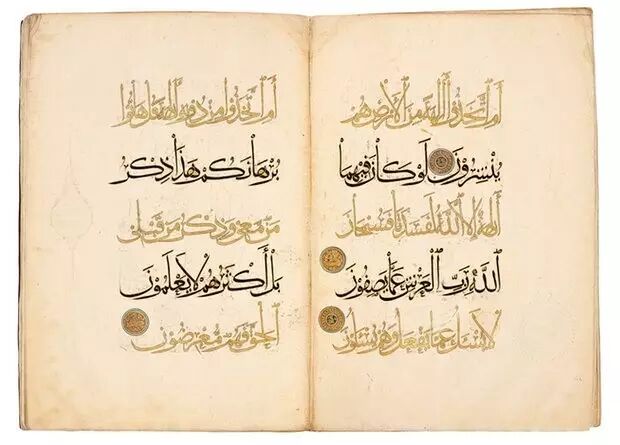 أَمِ اتَّخَذُوا آلِهَةً مِنَ الْأَرْضِ هُمْ
يُنْشِرُونَ لَوْ كَانَ فِيهِمَا
آلِهَةٌ إِلَّا اللَّهُ لَفَسَدَتَا فَسُبْحَانَ
اللَّهِ رَبِّ الْعَرْشِ عَمَّا يَصِفُونَ
لَا يُسْئَلُ عَمَّا يَفْعَلُ وَهُمْ يُسْئَلُونَ
أَمِ اتَّخَذُوا مِنْ دُونِهِ آلِهَةً قُلْ هَاتُوا
بُرْهَانَكُمْ هَذَا ذِكْرُ
مَنْ مَعِيَ وَذِكْرُ مَنْ قَبْلِي
بَلْ أَكْثَرُهُمْ لَا يَعْلَمُونَ
الْحَقَّ فَهُمْ مُعْرِضُونَ